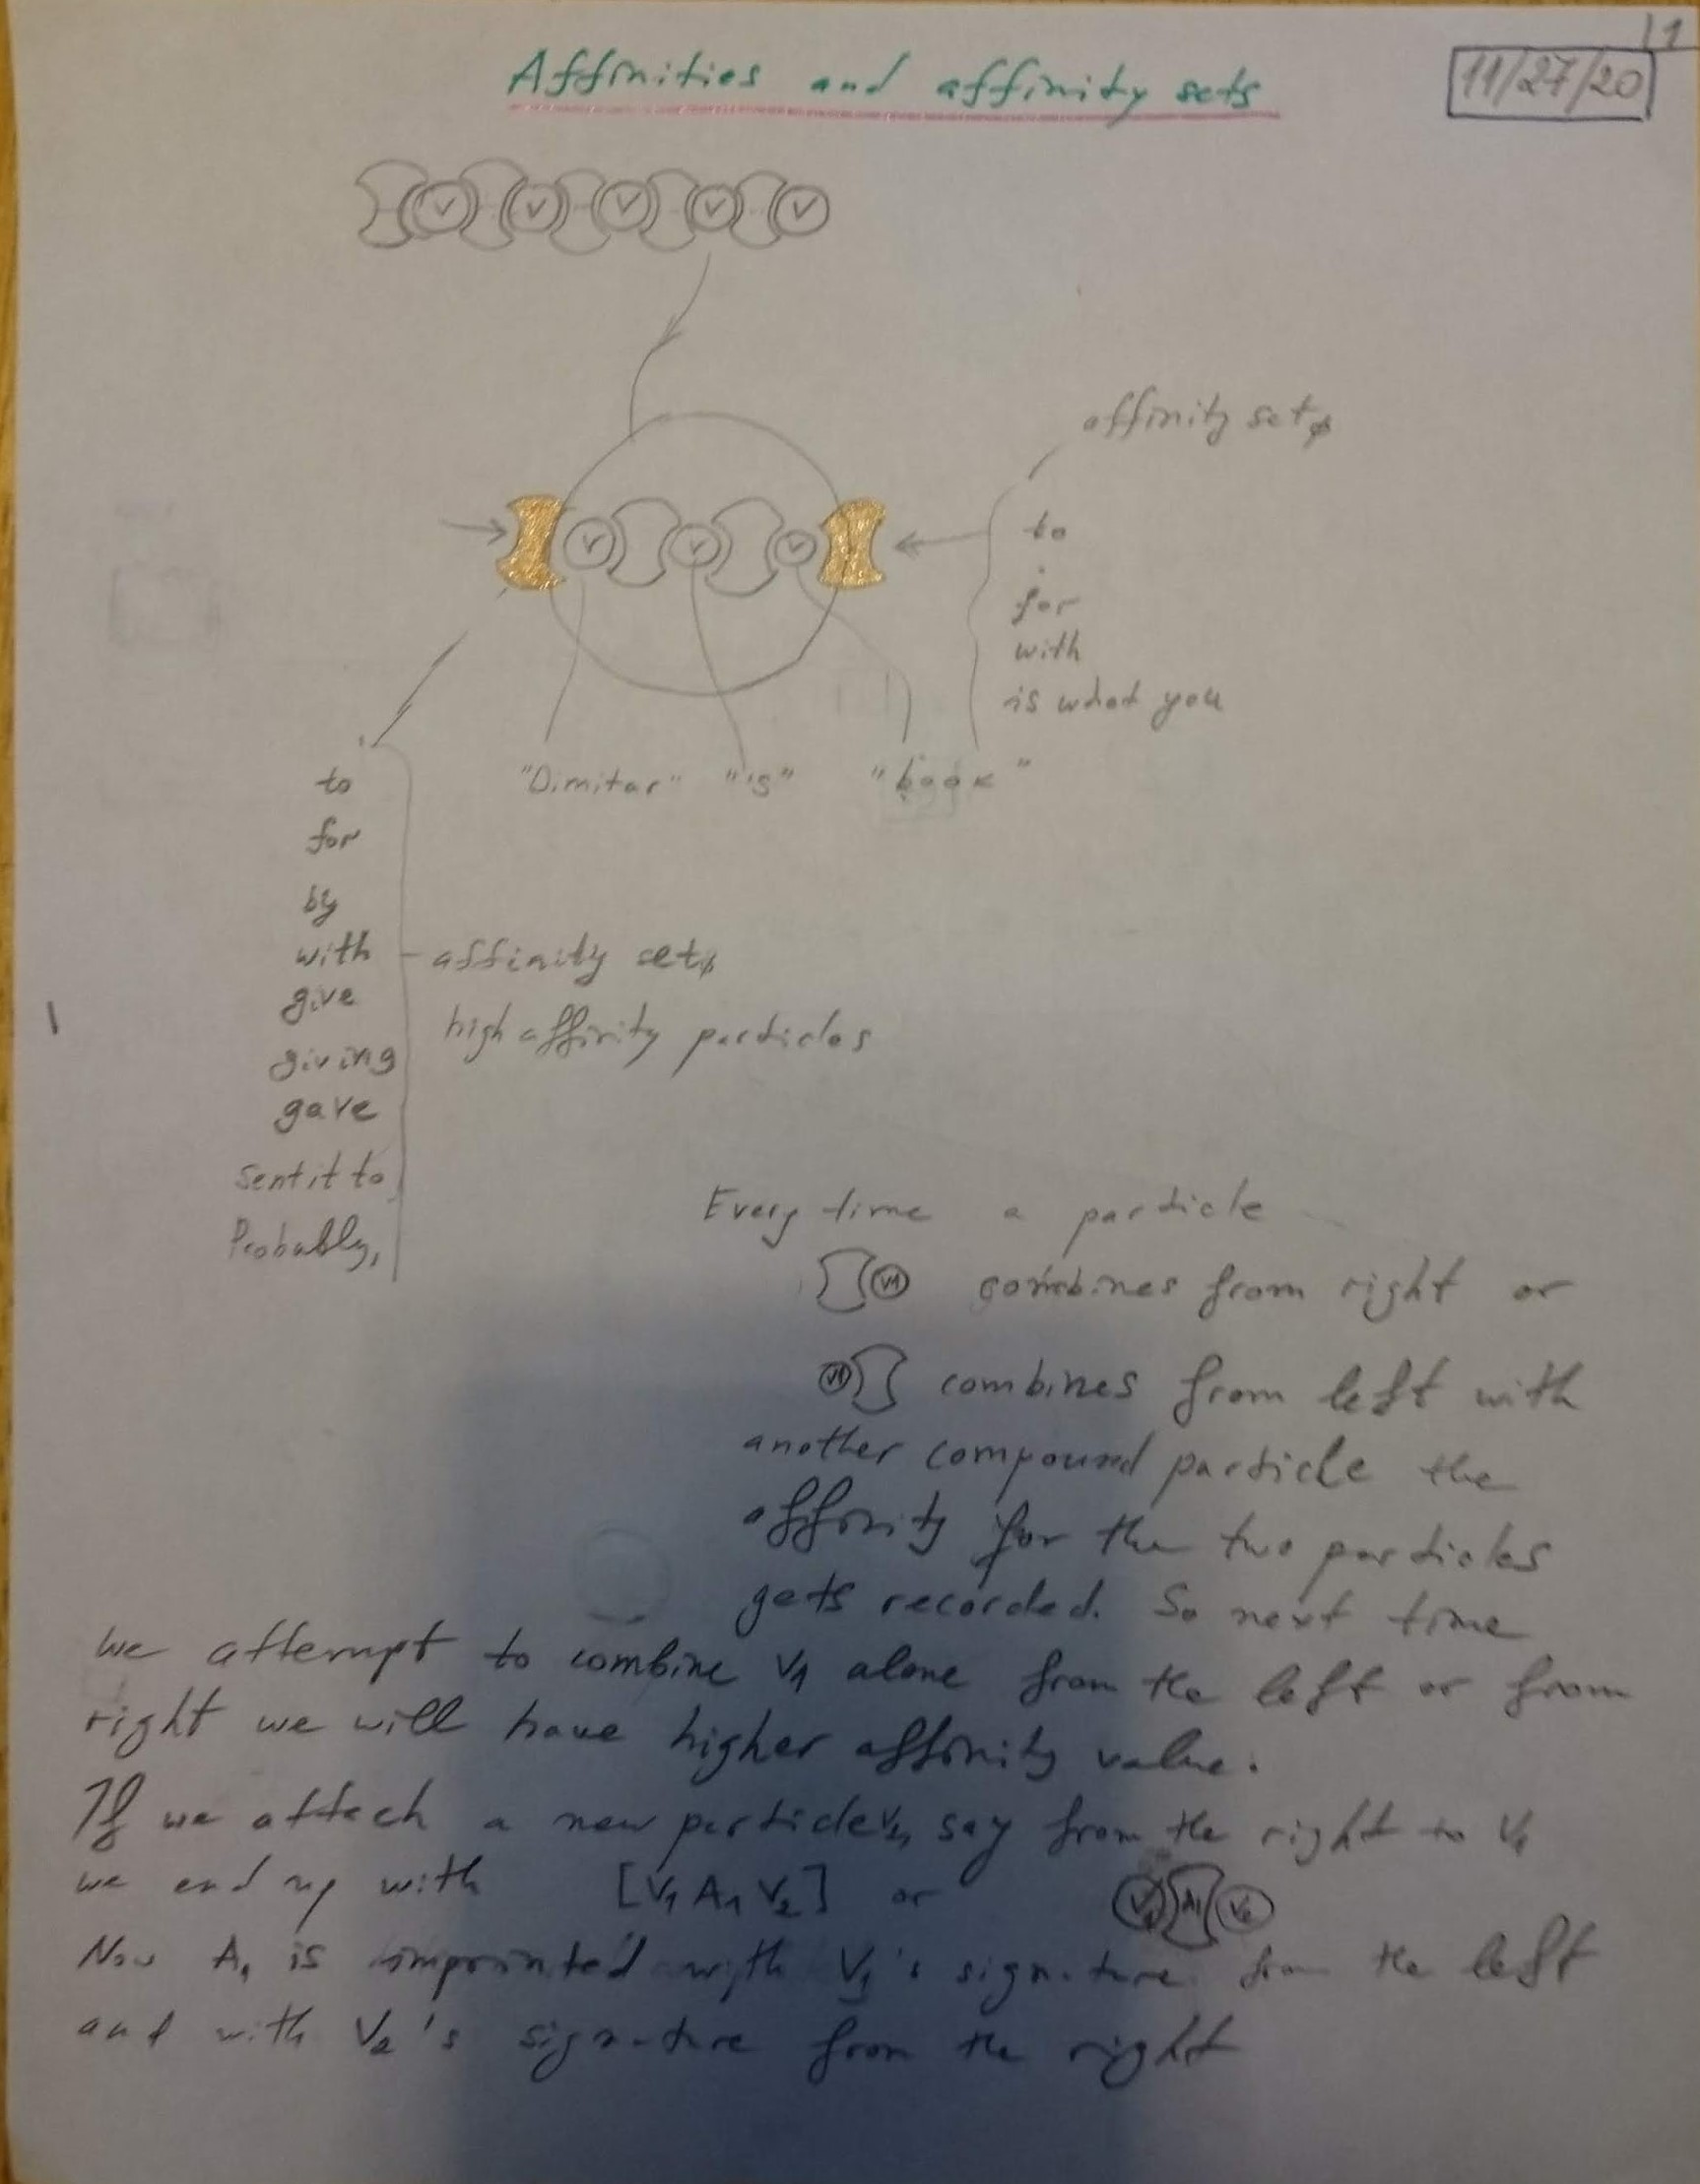 1
Affinities and affinity sets
11/27/20
V V V V V
affinity set
V V V
to
for
with
is what you
"Dimitar" "'s" "book"
to
for
by
with
give
giving
gave
sent it to
Probably,
affinity set
high affinity particles
Every time a particle
V1 combines from right or
V1 combines from left with
another compound particle the
affinity for the two particles
gets recorded. So next time
we attempt to combine V1 alone from the left or from
right we will have higher affinity value.
If we attach a new particle V2, say from the right to V1
we end up with [V1 A1 V2] or V1 A1 V2
Now A1 is imprinted with V1's signature from the left
and with V2's signature from the right